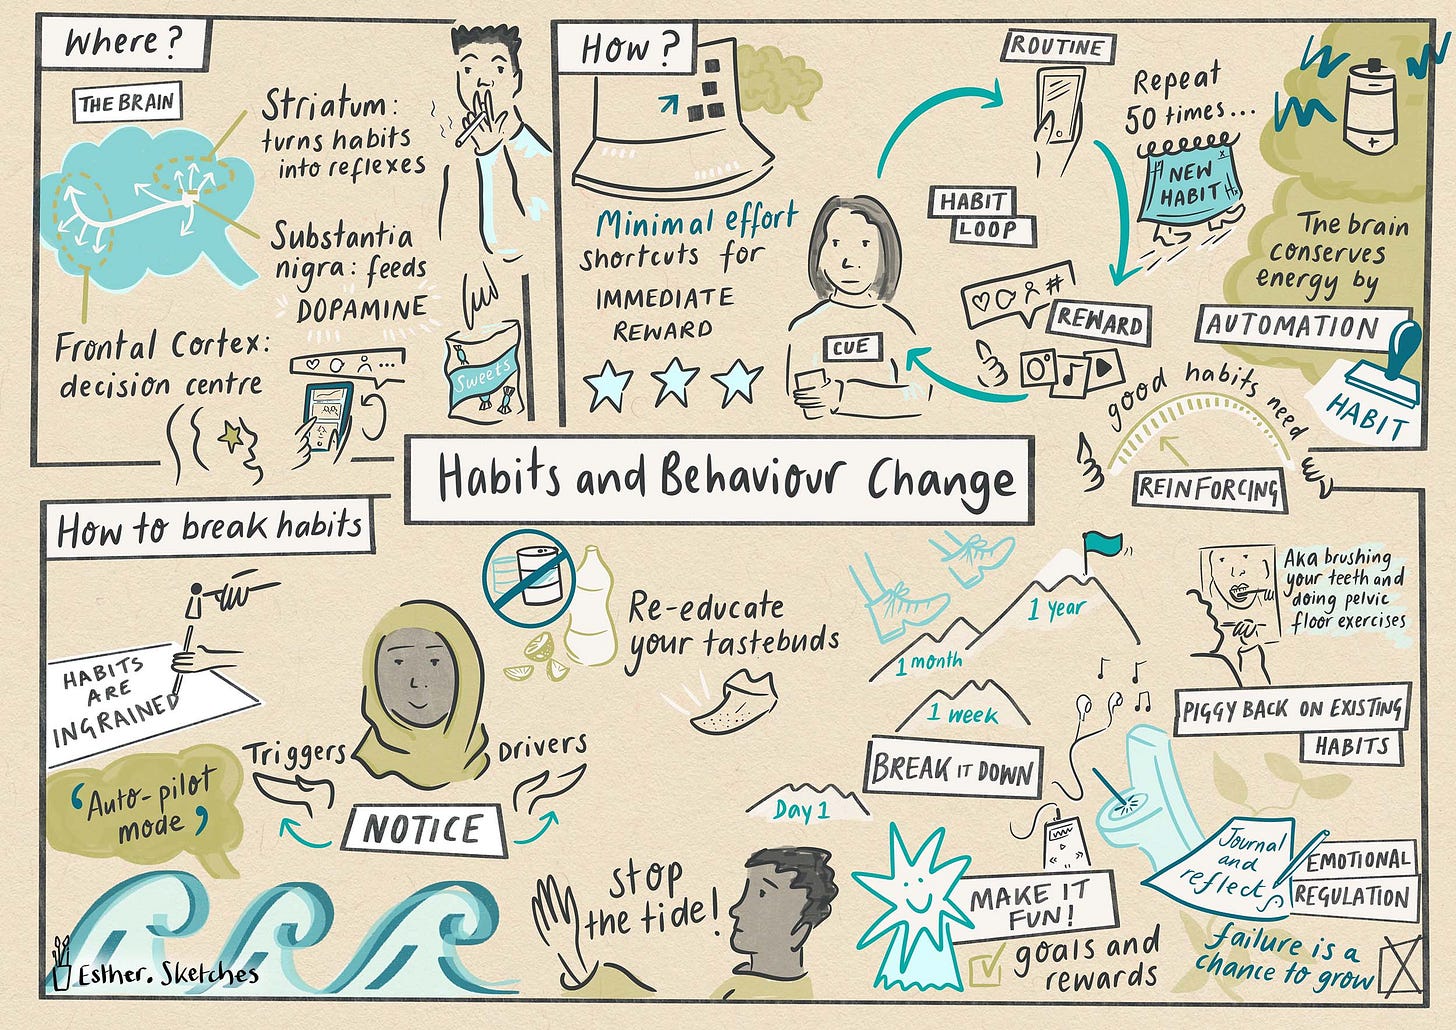 Where?
THE BRAIN
Striatum:
turns habits
into reflexes
Substantia
nigra: feeds
DOPAMINE
Frontal Cortex:
decision centre
Sweets
How?
Minimal effort
shortcuts for
IMMEDIATE
REWARD
CUE
HABIT
LOOP
ROUTINE
REWARD
#
Repeat
50 times...
NEW
HABIT
The brain
conserves
energy by
AUTOMATION
HABIT
good habits need
REINFORCING
Habits and Behaviour Change
How to break habits
HABITS
ARE
INGRAINED
'Auto-pilot
mode'
Triggers
Drivers
NOTICE
Re-educate
your tastebuds
stop
the tide!
1 year
1 month
1 week
BREAK IT DOWN
Day 1
Aka brushing
your teeth and
doing pelvic
floor exercises
PIGGY BACK ON EXISTING
HABITS
MAKE IT
FUN!
goals and
rewards
Journal
and
reflect
EMOTIONAL
REGULATION
failure is a
chance to grow
Esther.Sketches